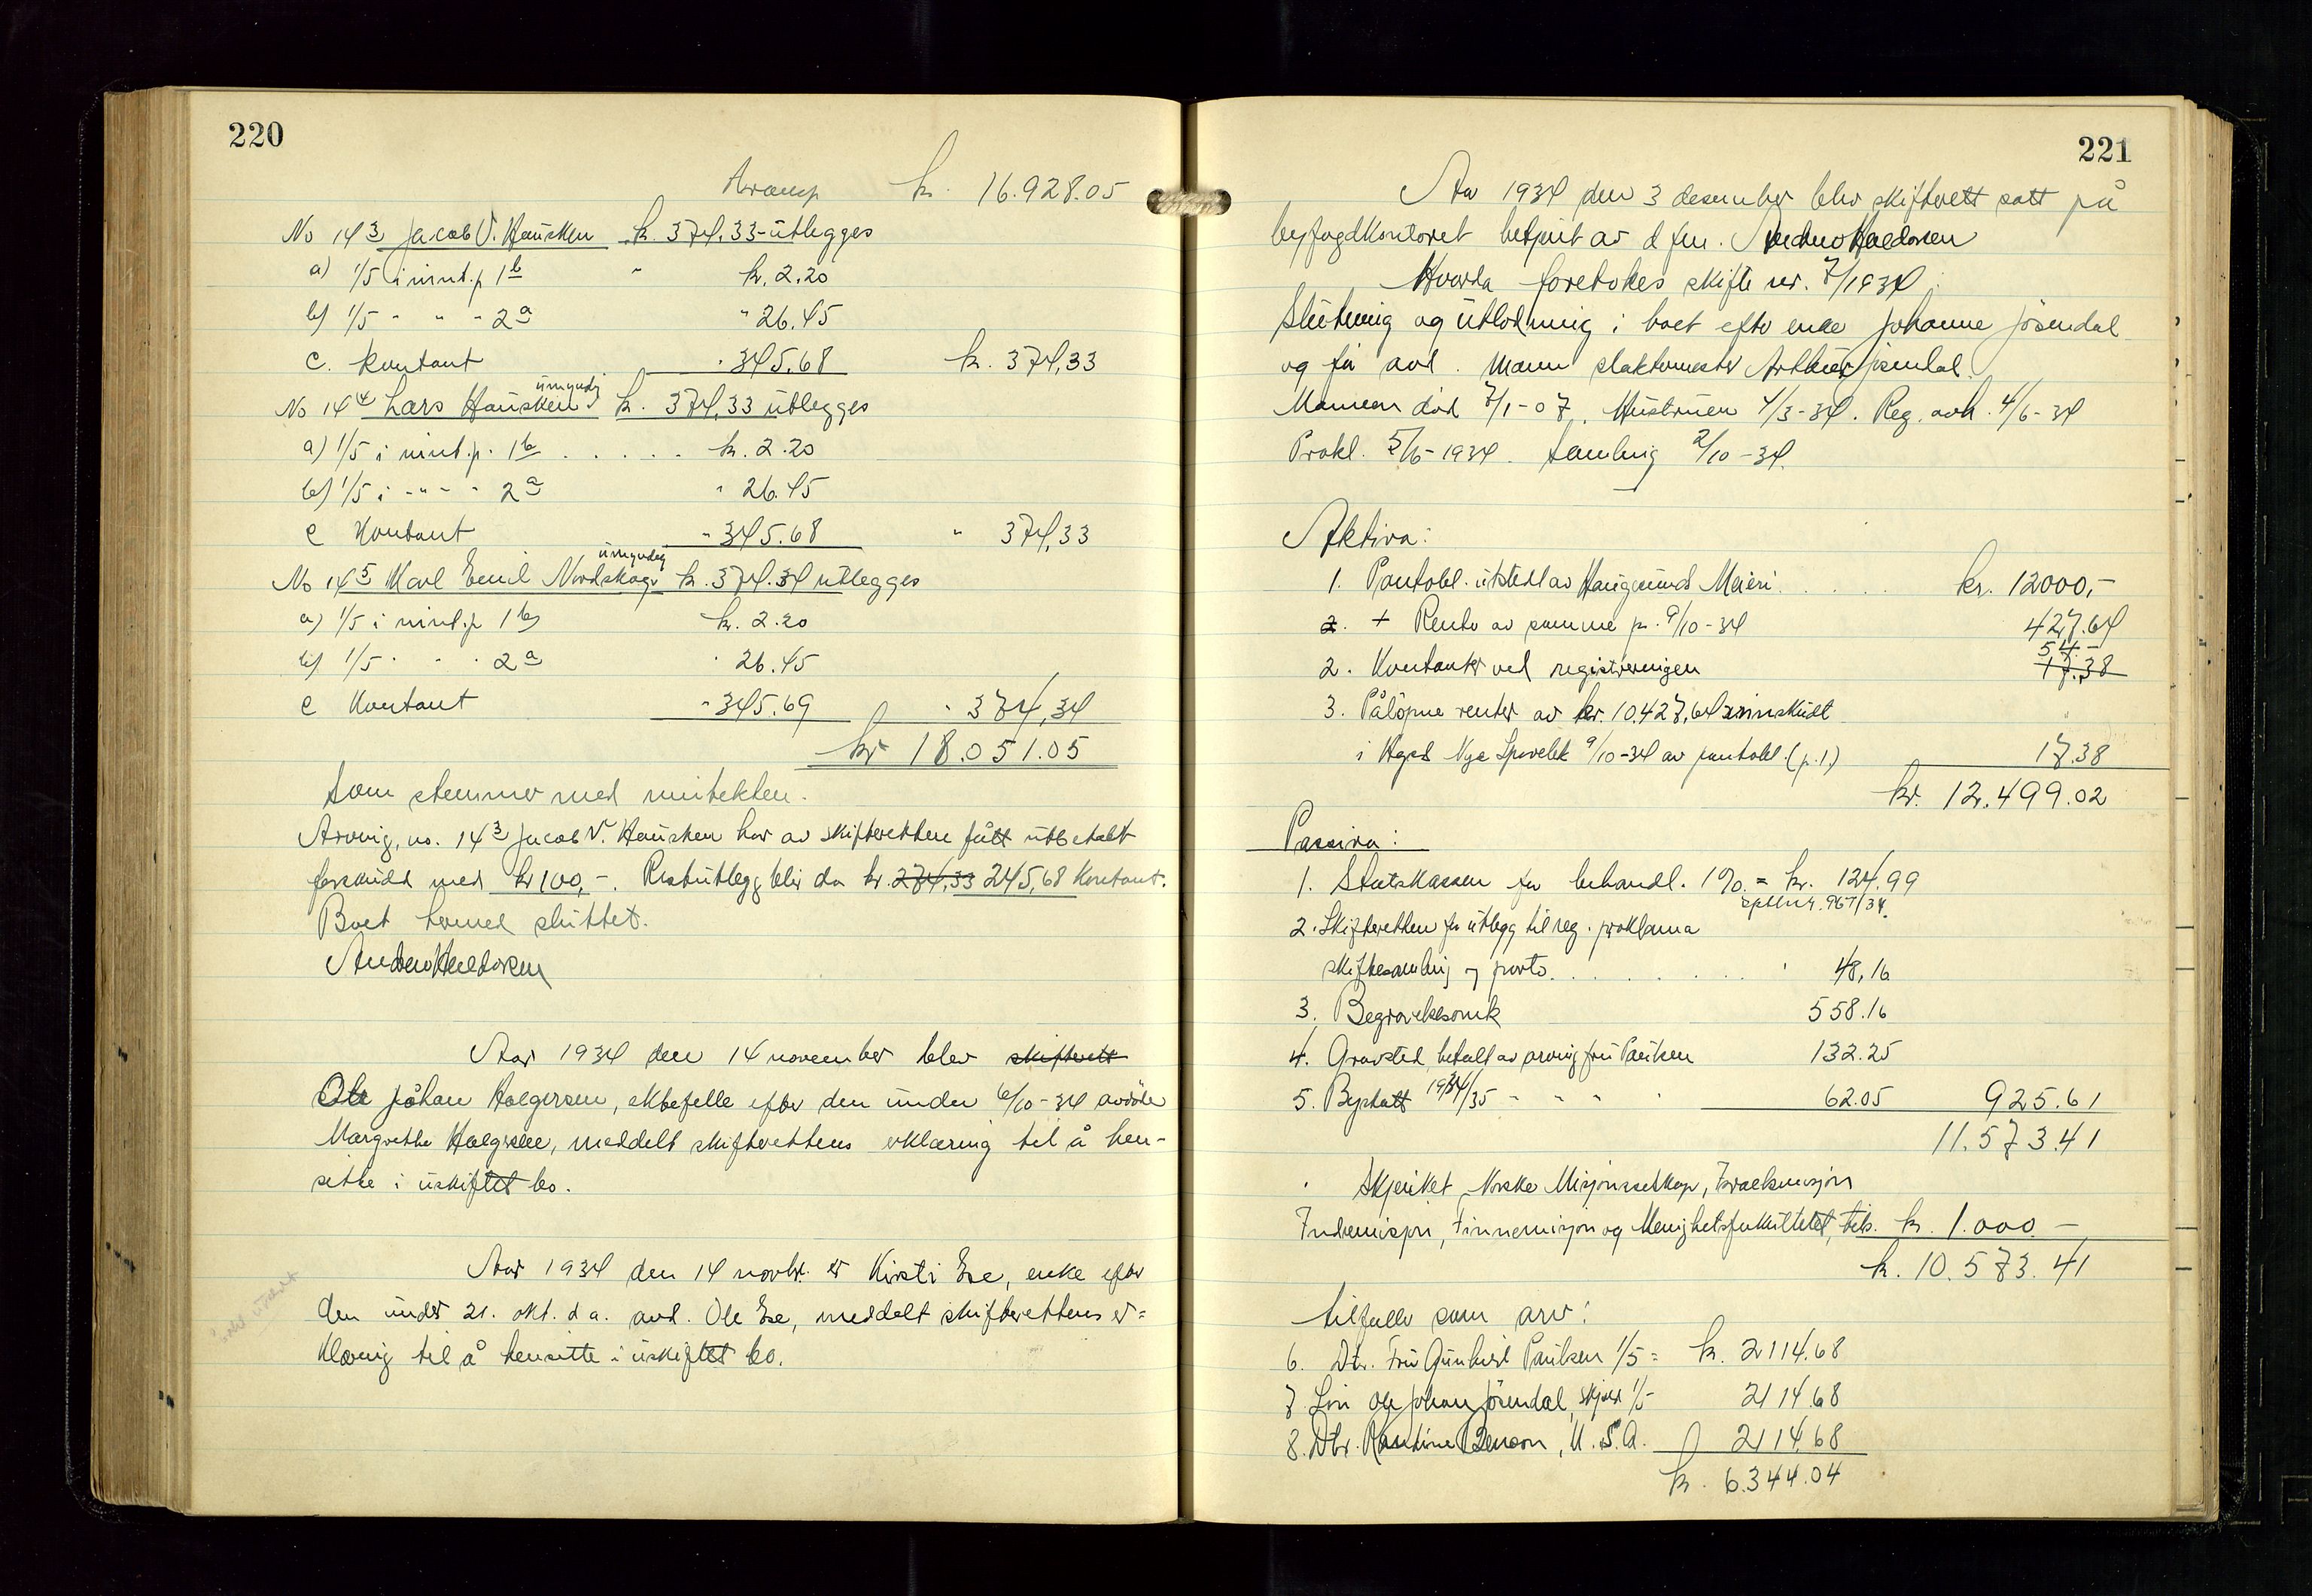 220
Transp. kr. 16.928.05
No 14 3 Jacob V. Hausken kr. 374,33 utlegges
a) 1/5 i nint.p 1 b " kr. 2.20
b) 1/5 " " " 2 a " 26.45
c. kontant " 345.68 kr. 374,33
umyndig
No 14 4 Lars Hausken kr. 374,33 utlegges
a) 1/5 i nint.p. 1 b . . . . . kr. 2.20
b) 1/5 i " " " 2 a " 26.45
c Kontant " 345.68 " 374,33
umyndig
No 14 5 Karl Emil Nordskog kr. 374.34 utlegges
a) 1/5 i nint.p 1 b) kr. 2.20
b) 1/5 " " " 2 a " 26.45
c Kontant " 345.69 " 374,34
kr 18.051.05
som stemmer med inntekten.
Arving, no. 14 3 Jacob V. Hausken har av skifteretten fått utbetalt
forskudd med kr 100,-. Restutlegg blir da kr. 274,33 245,68 Kontant.
Boet hermed sluttet.
Aar 1934 den 14 november blev skifterett
Ole Johan Halgersen, ektefelle efter den under 6/10-34 avdøde
Margrethe, meddelt skifterettens erklæring til å hen-
sitte i uskiftet bo.
Aar 1934 den 14 novbr. er Kirsti Ese, enke efter
den under 21. okt. d a. avd. Ole Ese, meddelt skifterettens er=
klæring til å hensitte i uskiftet bo.
221
Aar 1934 den 3 desember blev skifterett satt på
byfogdkontoret betjent av d fm.
Hvorda foretokes skifte nr. 7/1934:
Slutning og utlodning i boet efter enke Johanne Jösendal
og før avd. mann slaktermester Arthur Jösendal.
Mannen död 7/1-07. Hustruen 4/3-34. Reg. avh. 4/6-34
Prokl. 5/6-1934. Samling 2/10-34.
Aktiva:
1. Pantobl. utstedt av Haugesunds Meieri . . . . . kr. 12000,-
2. + Rente av samme pr. 9/10-34 427.64
54,-
2. Kontanter ved registreringen 17.38
3. Pålöpne renter av kr. 10.427,64 innskudt
i Hgsd Nye Sparebk 9/10-34 av pantobl. (p. 1.) 17.38
kr. 12.499.02
Passiva:
1. Statskassen for behandl. 1% = kr. 124.99
967/34.
2. Skifteretten for utlegg til reg. proklama
skiftesamling og porto. . . . . . . . 48,16
3. Begravelsesomk 558.16
4. Gravsted, betalt av arving fru Paulsen 132.25
5. Byskatt 1934/35 " " " " 62.05 925.61
11.573.41
Skjenket Norske Misjonsselskap, Israelsmisjon
Indremisjon, Finnemisjon og Menighetsfakultetet, tils. kr. 1.000 -
kr. 10.573.41
tilfaller som arv:
6. Dtr. Fru Gunhild Paulsen 1/5 = kr. 2114.68
7. Sön Ole Johan Jösendal, Skjold 1/5 2114.68
8. Dtr. Rasline Benson, U.S.A. 2114.68
kr. 6.344.04